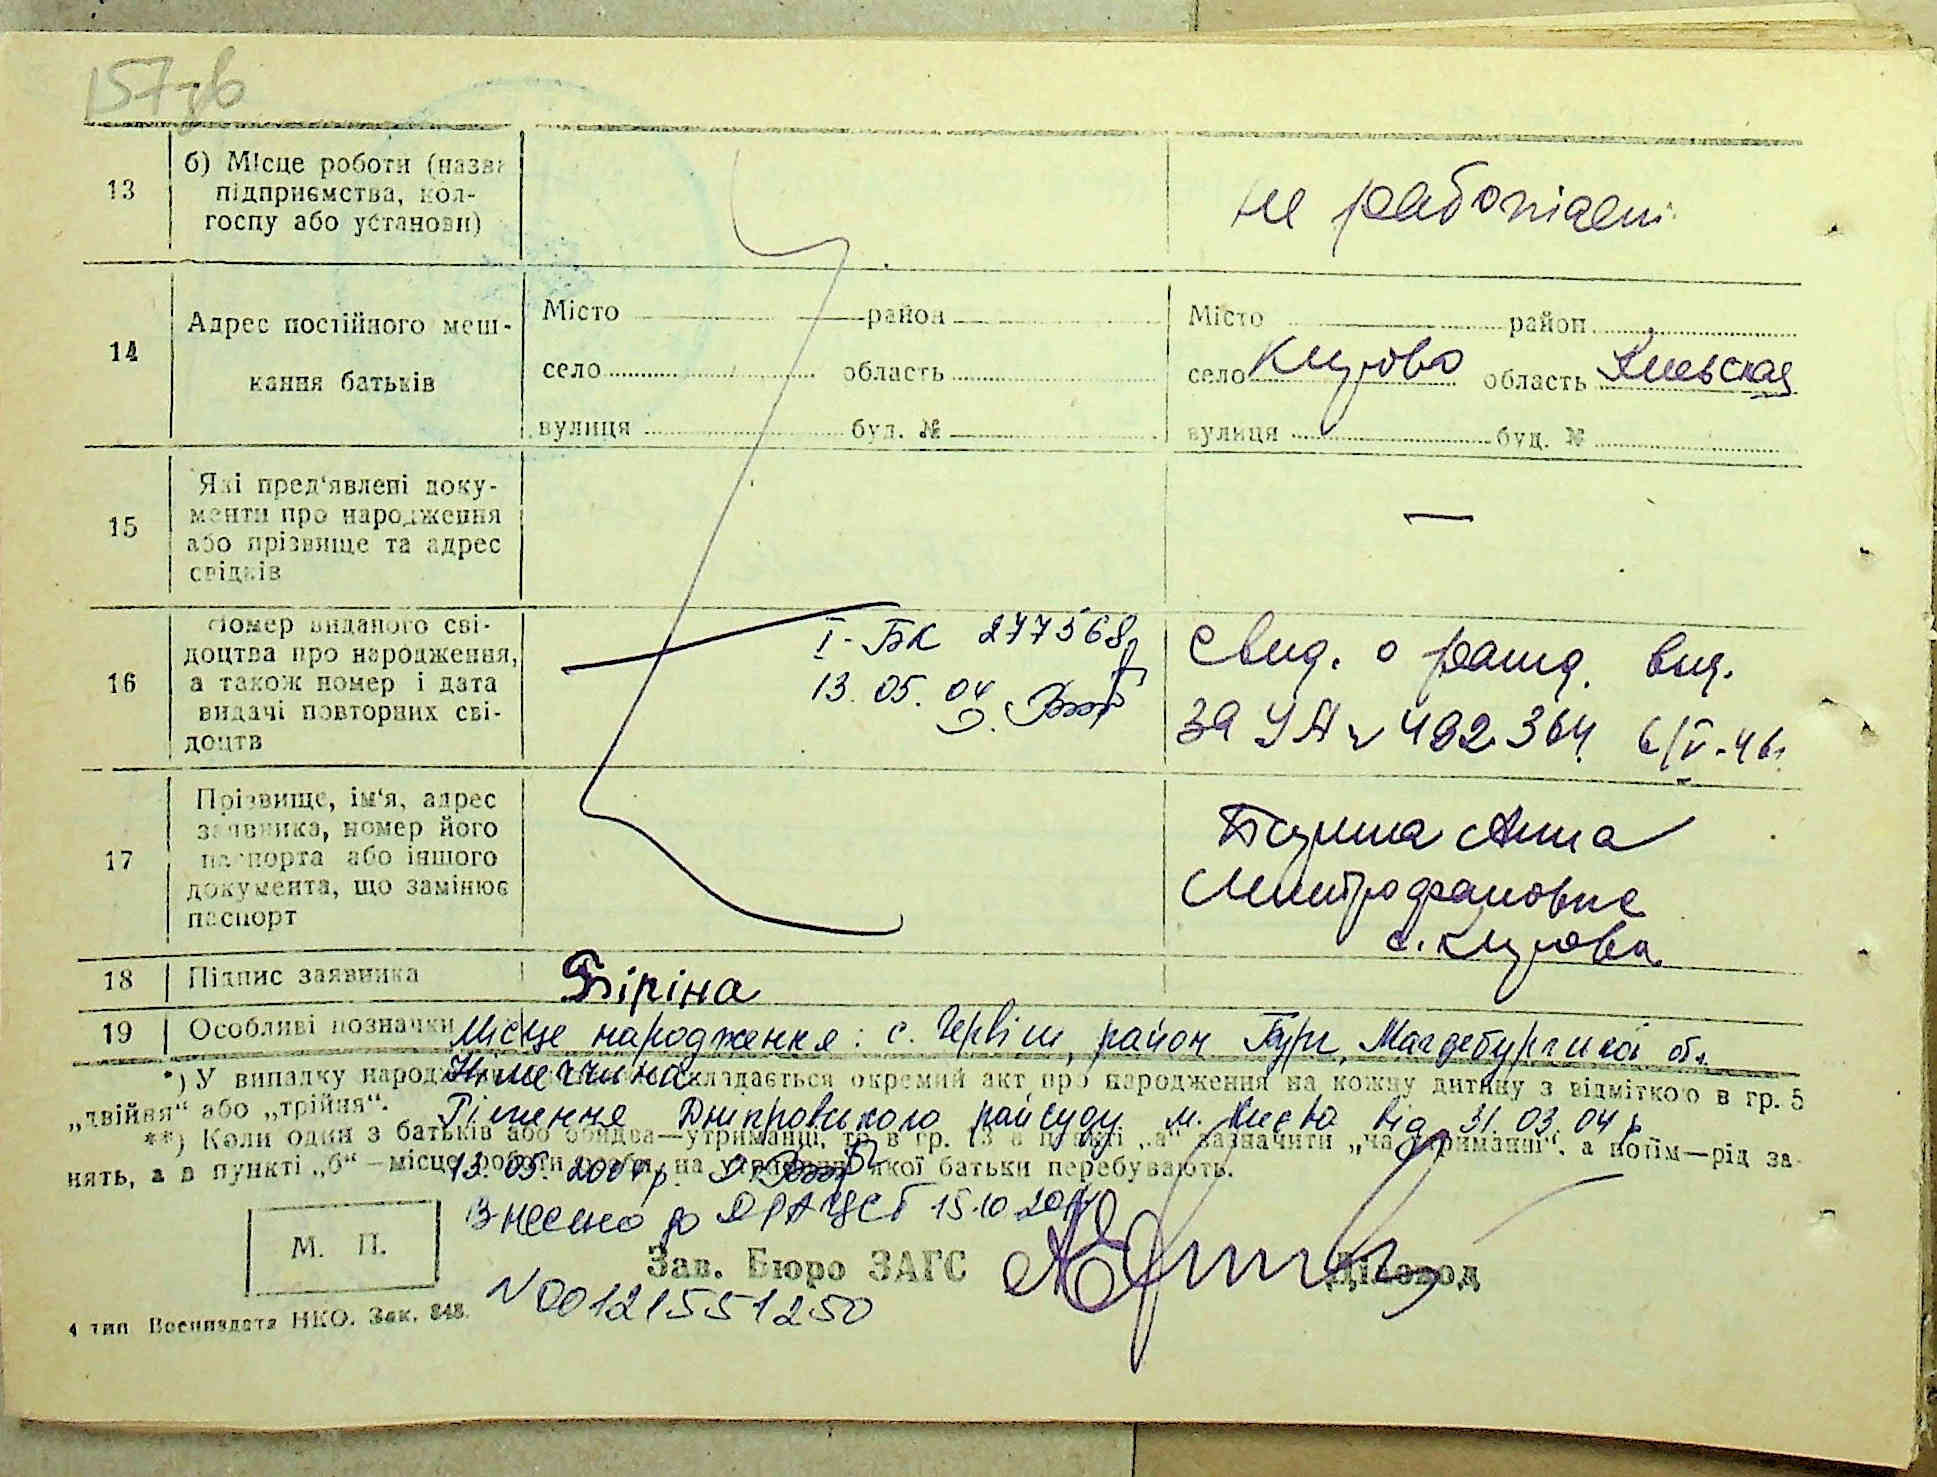 157зв
13
б) Місце роботи (назва
підприємства, кол-
госпу або установи)
не работает
14
Адрес постійного меш-
кання батьків
Місто район
село область
вулиця буд. №
Місто район
село область Киевская
вулиця буд. №
15
Які пред'явлені доку-
менти про народження
або прізвище та адрес
свідків
—
16
Номер виданого сві-
доцтва про народження,
а також номер і дата
видачі повторних сві-
доцтв
I-БК 277568
13.05.04
Свид. о рожд. выд.
за УА № 492364 6/V-46г
17
Прізвище, ім'я, адрес
заявника, номер його
паспорта або іншого
документа, що замінює
паспорт
Анна
Митрофановна
с.
18
Підпис заявника
Біріна
19
Особливі позначки
Місце народження: с. район Бург, Магдебургської обл.
Німеччина
*) У випадку народження складається окремий акт про народження на кожну дитину з відміткою в гр. 5
„двійня“ або „трійня“.
Рішення Дніпровського райсуду м. Києва від 31.03.04 р
**) Коли один з батьків або обидва—утриманці, то в гр. 13 в пункті „а“ зазначити „на утриманні“, а потім—рід за-
нять, а в пункті „б“—місце роботи особи, на утриманні якої батьки перебувають.
13.05.2004р.
Внесено до ДРАЦСГ 15.10.
М. П.
Зав. Бюро ЗАГС
Діловод
N00121551250
4 тип Воениздата НКО. Зак. 848.